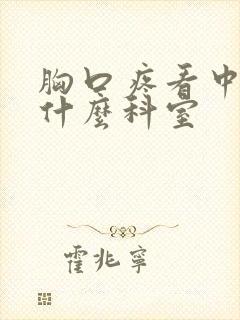 胸口疼看中
什麼科室
霍兆寧